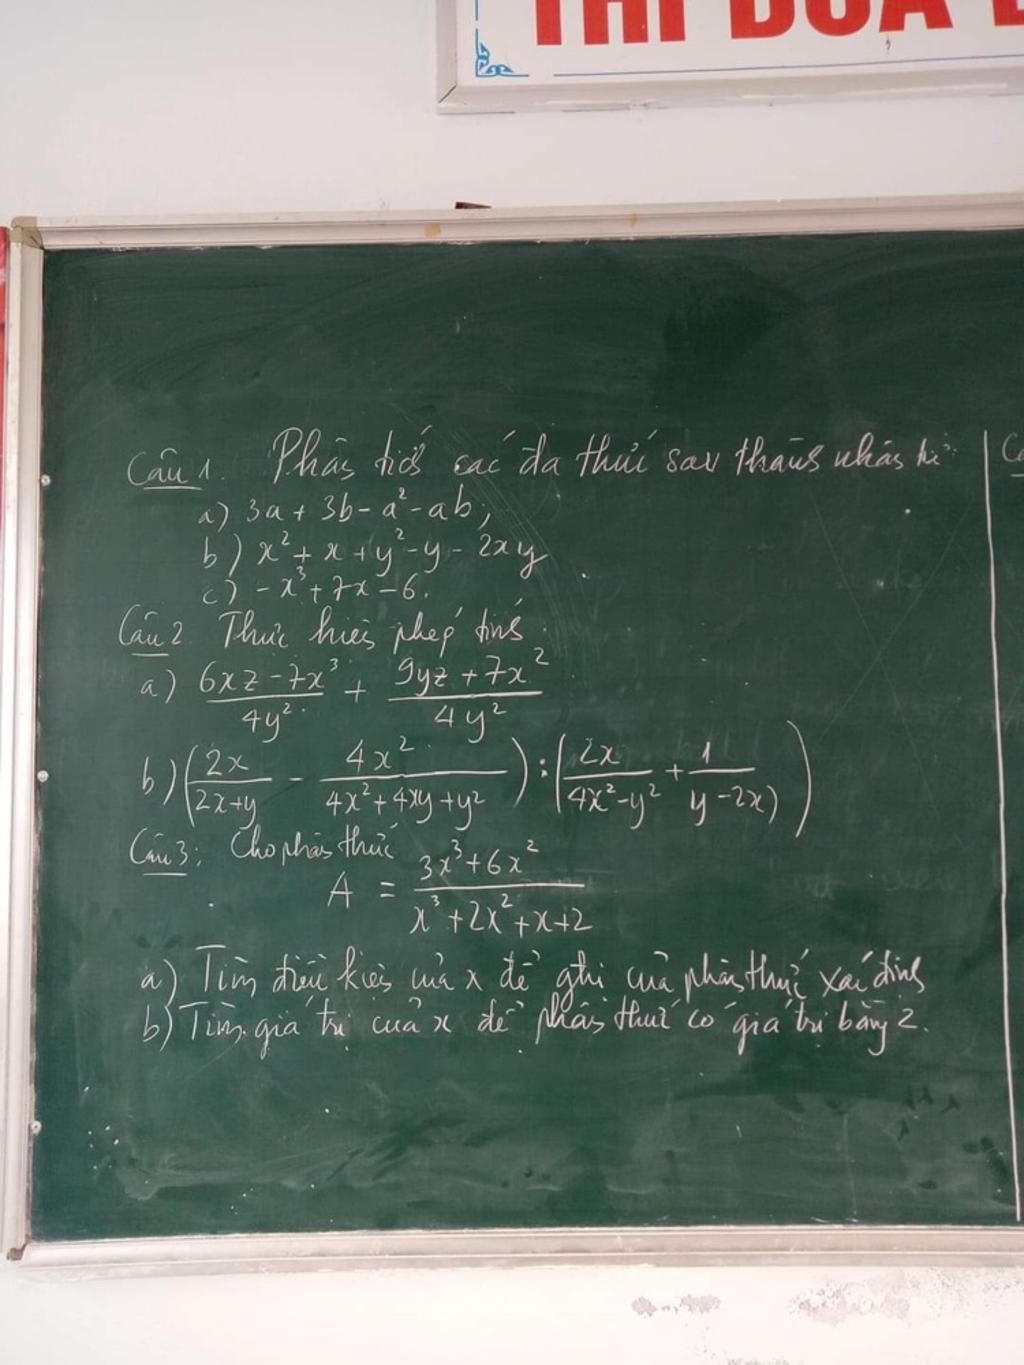 THI ĐUA
Câu 1. Phân tích các đa thức sau thành nhân tử:
a) 3a + 3b - a² - ab;
b) x² + x + y² - y - 2xy
c) -x³ + 7x - 6.
Câu 2. Thực hiện phép tính:
a) (6xz - 7x³)/(4y²) + (9yz + 7x²)/(4y²)
b) (2x/(2x+y) - 4x²/(4x²+4xy+y²)) : (2x/(4x²-y²) + 1/(y-2x))
Câu 3: Cho phân thức
A = (3x³+6x²)/(x³+2x²+x+2)
a) Tìm điều kiện của x để gtri của phân thức xác định
b) Tìm giá trị của x để phân thức có giá trị bằng 2.